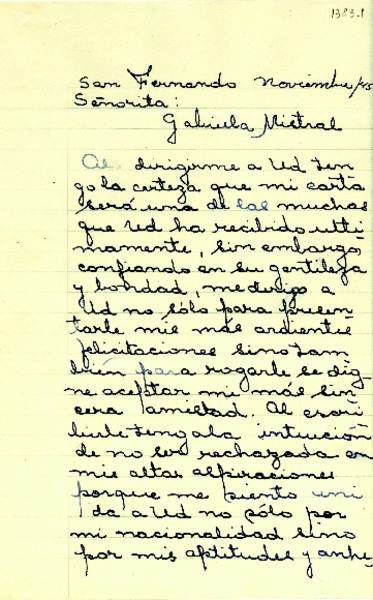 1383.1
San Fernando Noviembre/45
Señorita:
Gabriela Mistral
Al dirigirme a Ud ten
go la certeza que mi carta
será una de las muchas
que Ud ha recibido ulti
mamente, sin embargo,
confiando en su gentileza
y bondad, me dirijo a
Ud no sólo para presen-
tarle mis más ardientes
felicitaciones sino tam
bién para rogarle se dig
ne aceptar mi más sin
cera amistad. Al escri
birle tengo la intuición
de no ser rechazada en
mis altas aspiraciones
porque me siento uni
da a Ud no sólo por
mi nacionalidad sino
por mis aptitudes y anhe-